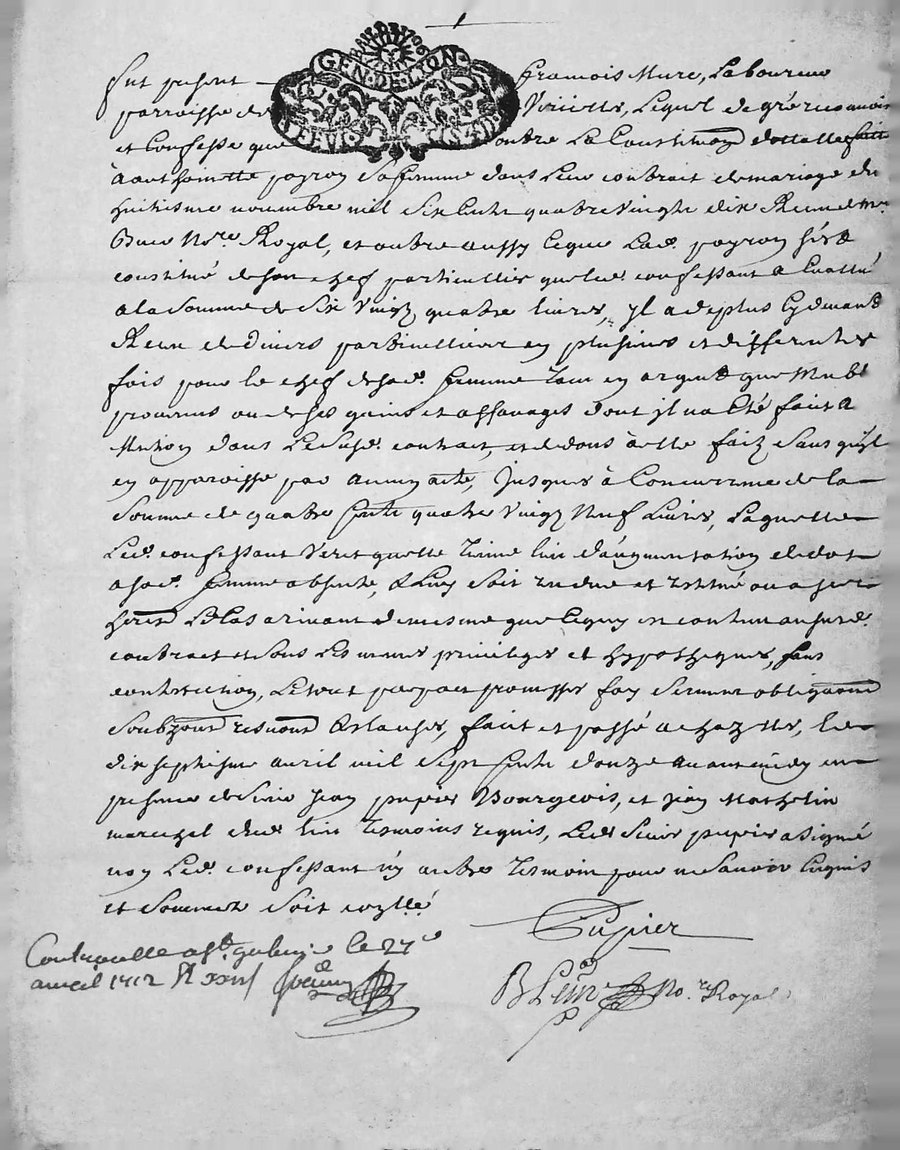 GEN·DE·LYON
fut present François Mure, Laboureur
parroisse de Viricelles, Lequel de gré reconnois
et Confesse que outre La Constitution dottalle faitte
à anthoinette payron sa femme dans Leur contrait de mariage du
huitiesme novembre mil Six Cents quatre Vingts dix Receu
No.re Royal, et outre aussy ce que Lad. payron s'est
constitué de son chef particullier que led. confessant a
a la somme de Six Vingt quatre livres, jl a de plus
Receu de divers particulliers en plusieurs et differentes
fois pour le chef de sad. femme tant en argent que
provenus ou de ses gains et dont jl n'a été fait
dans Le susd. contrait, et dons à elle faitz sans qu'jl
en apparoisse par aucun acte, Jusques à Concurrance de la
Somme de quatre Cents quatre Vingt Neuf Livres, Laquelle
Led. confessant Veut quelle tienne lieu d'augmentation de dot
a sad. femme absente, soit rendue et restitué ou a ses
Le Cas arrivant de mesme que ce qui est contenu au susd.
contract et sous Les mesmes privileges et hypotheques, sans
Le tout par pact promesses foy serment obligations
Soubz clauses, fait et passé a chazelles, le
dix septiesme avril mil Sept Cents douze avant midy en
presence de Sieur Jean pupier Bourgeois, et Jean Mathelin
marechal dud. lieu tesmoins requis, Led. Sieur pupier a signé
non Led. confessant n'y autre tesmoin pour ne Scavoir Enquis
et Sommez Soit
Pupier
Controuelle a St. galmier le 27e
avril 1712
No.re Royal